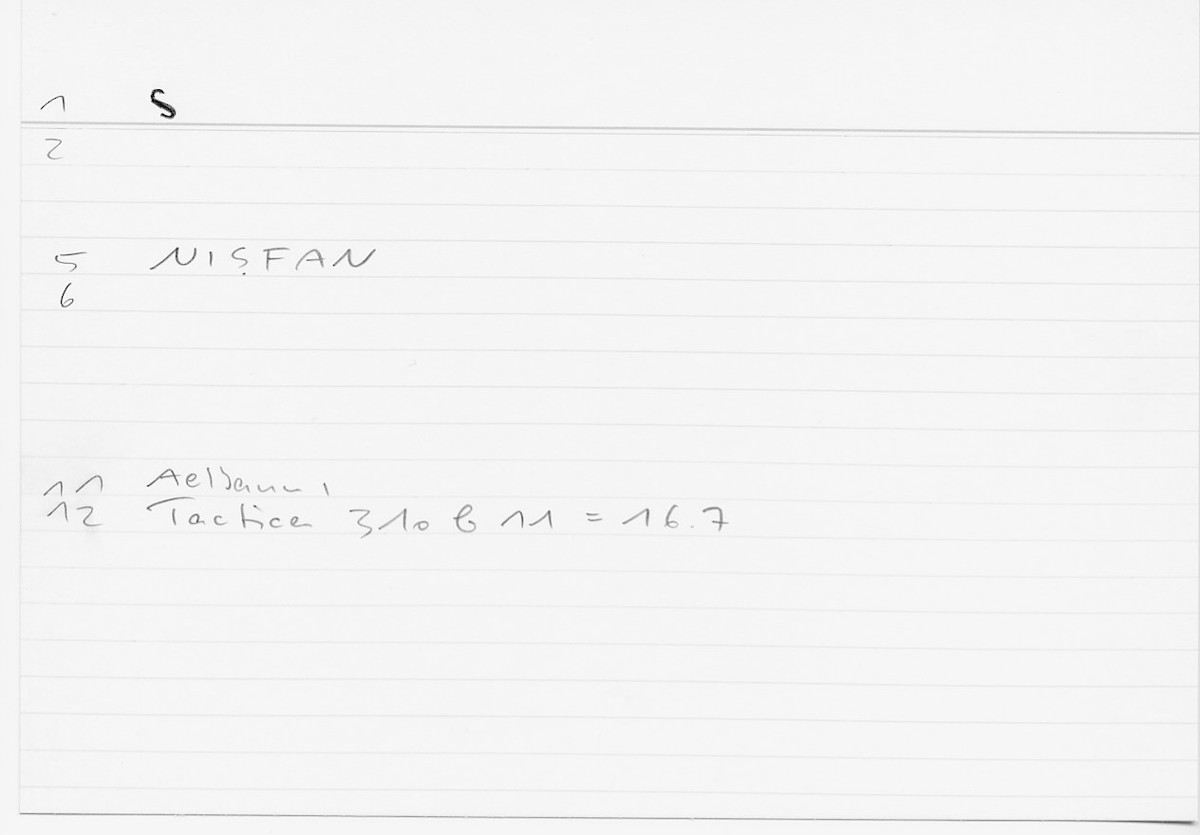 1 S
2
5 NIṢFAN
6
11 Aelianus,
12 Tactica 310 b 11 = 16.7